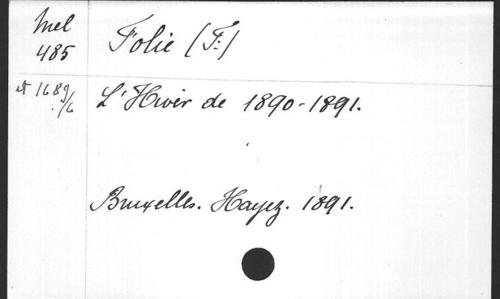 Mel
485
Folie (F:)
et 1689/6
L'Hiver de 1890-1891.
Bruxelles. Hayez. 1891.